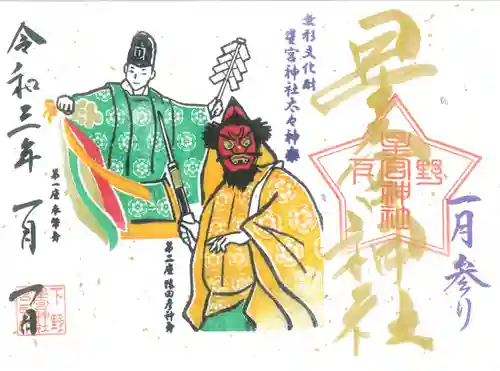 無形文化財
星宮神社太々神楽
星宮神社
星宮神社
下野
一月参り
第一座 奉幣舞
第二座 猿田彦神舞
令和三年 一月 一日
下野
星宮神社